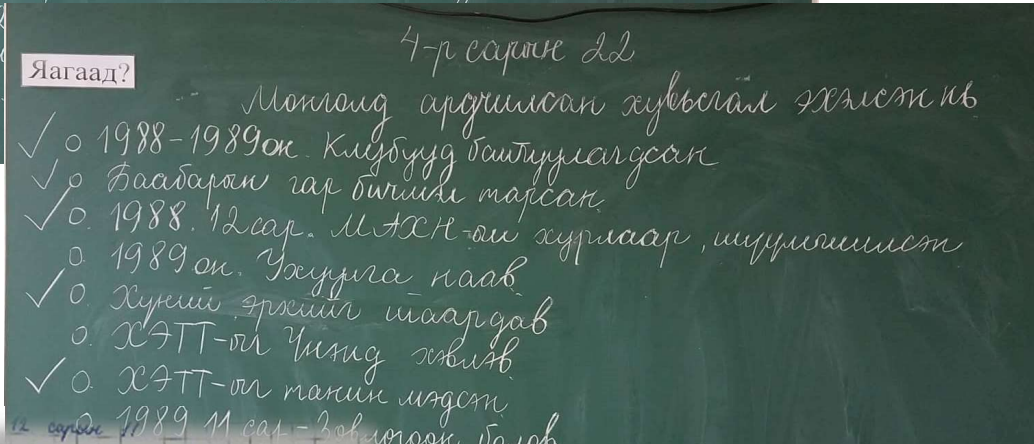 4-р сарын 22
Яагаад?
Монголд ардчилсан хувьсгал эхэлсэн нь
1988-1989 он. Клубууд байгуулагдсан
Баабарын гар бичмэл тарсан.
1988. 12 сар. МАХН-ын хурлаар, шүүмжилсэн
1989 он. Ухуулга наав
Хүний эрхийг шаардав
ХЭТТ-ыг Үнэнд хэвлэв.
ХЭТТ-ыг танин мэдсэн.
1989 11 сар - Зөвлөгөөн болов
12 сарын 11